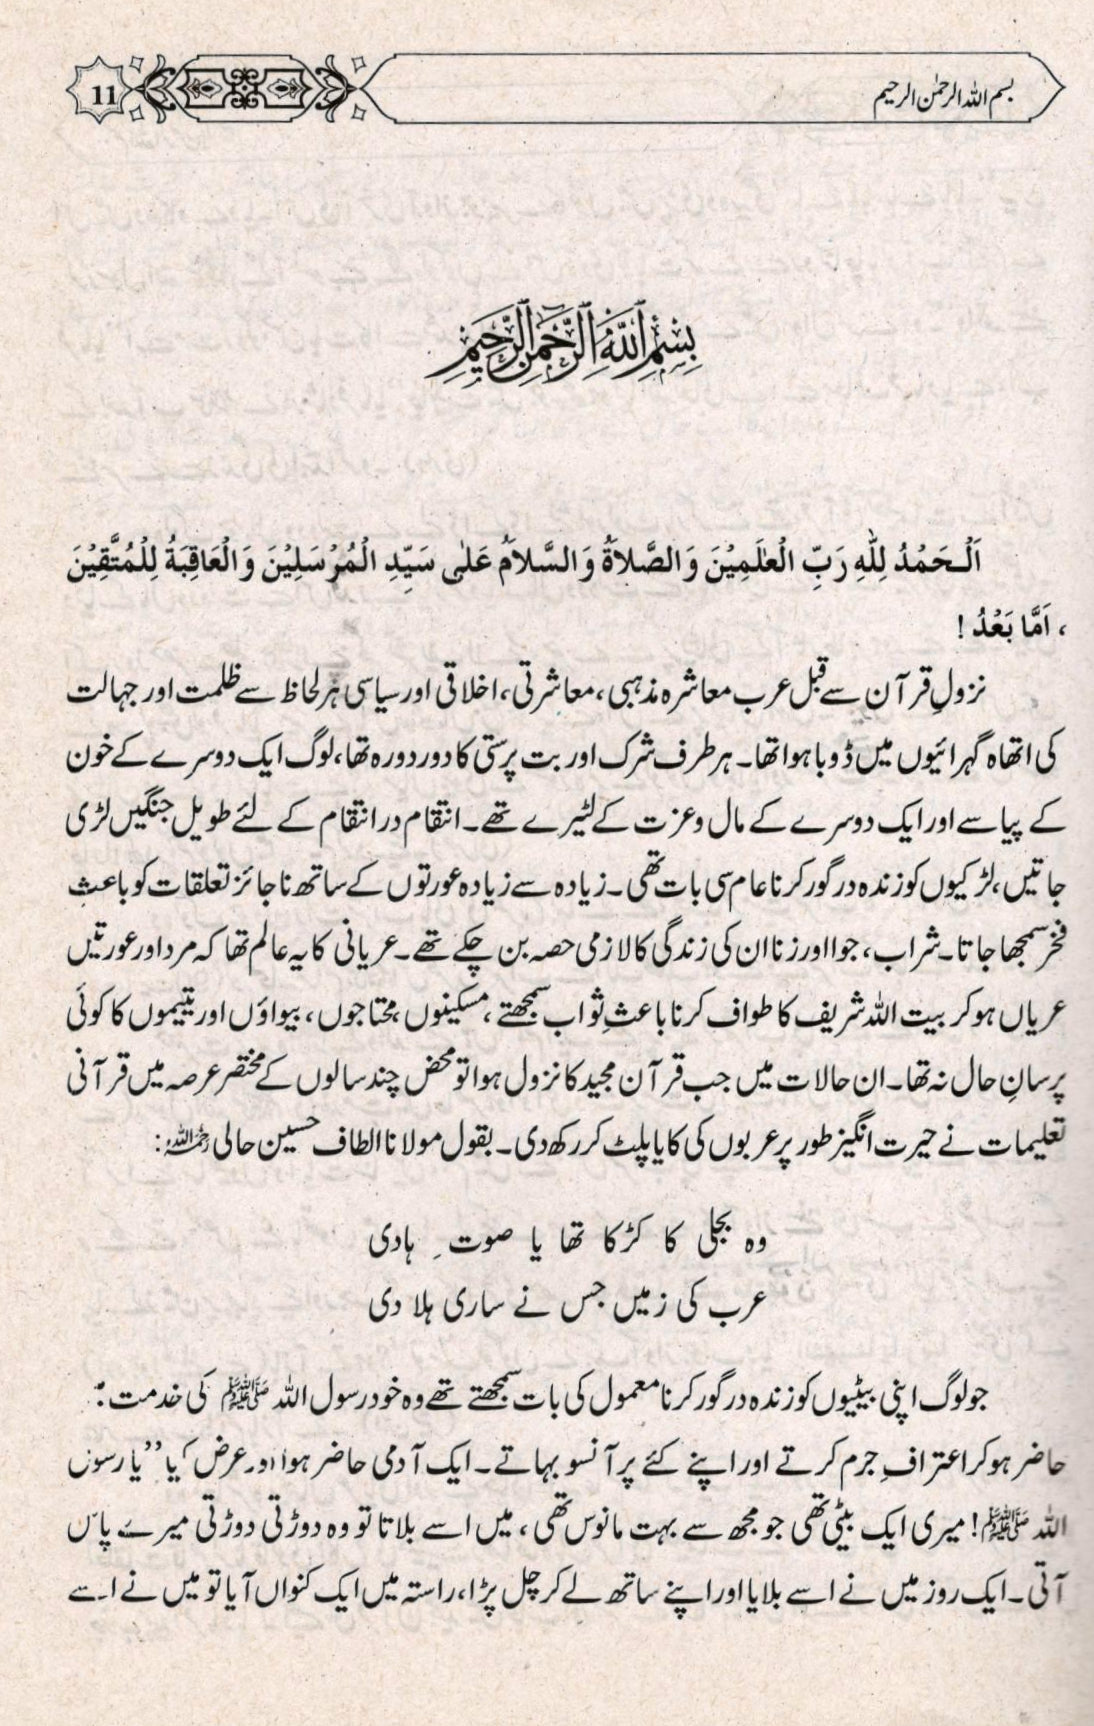 بسم اللہ الرحمٰن الرحیم
11
بِسْمِ اللّٰهِ الرَّحْمٰنِ الرَّحِيْمِ
اَلْحَمْدُ لِلّٰهِ رَبِّ الْعٰلَمِيْنَ وَالصَّلاَةُ وَالسَّلاَمُ عَلٰى سَيِّدِ الْمُرْسَلِيْنَ وَالْعَاقِبَةُ لِلْمُتَّقِيْنَ
، اَمَّا بَعْدُ !
نزولِ قرآن سے قبل عرب معاشرہ مذہبی، معاشرتی، اخلاقی اور سیاسی ہر لحاظ سے ظلمت اور جہالت
کی اتھاہ گہرائیوں میں ڈوبا ہوا تھا۔ ہر طرف شرک اور بت پرستی کا دور دورہ تھا، لوگ ایک دوسرے کے خون
کے پیاسے اور ایک دوسرے کے مال و عزت کے لٹیرے تھے۔ انتقام در انتقام کے لئے طویل جنگیں لڑی
جاتیں، لڑکیوں کو زندہ درگور کرنا عام سی بات تھی۔ زیادہ سے زیادہ عورتوں کے ساتھ ناجائز تعلقات کو باعثِ
فخر سمجھا جاتا۔ شراب، جوا اور زنا ان کی زندگی کا لازمی حصہ بن چکے تھے۔ عریانی کا یہ عالم تھا کہ مرد اور عورتیں
عریاں ہو کر بیت اللہ شریف کا طواف کرنا باعثِ ثواب سمجھتے، مسکینوں، محتاجوں، بیواؤں اور یتیموں کا کوئی
پرسانِ حال نہ تھا۔ ان حالات میں جب قرآن مجید کا نزول ہوا تو محض چند سالوں کے مختصر عرصہ میں قرآنی
تعلیمات نے حیرت انگیز طور پر عربوں کی کایا پلٹ کر رکھ دی۔ بقول مولانا الطاف حسین حالی رحمہ اللہ:
وہ بجلی کا کڑکا تھا یا صوت ِ ہادی
عرب کی زمیں جس نے ساری ہلا دی
جو لوگ اپنی بیٹیوں کو زندہ درگور کرنا معمول کی بات سمجھتے تھے وہ خود رسول اللہ ﷺ کی خدمت
حاضر ہو کر اعترافِ جرم کرتے اور اپنے کئے پر آنسو بہاتے۔ ایک آدمی حاضر ہوا اور عرض کیا ’’یا رسول
اللہ ﷺ! میری ایک بیٹی تھی جو مجھ سے بہت مانوس تھی، میں اسے بلاتا تو وہ دوڑتی دوڑتی میرے پاس
آتی۔ ایک روز میں نے اسے بلایا اور اپنے ساتھ لے کر چل پڑا، راستہ میں ایک کنواں آیا تو میں نے اسے